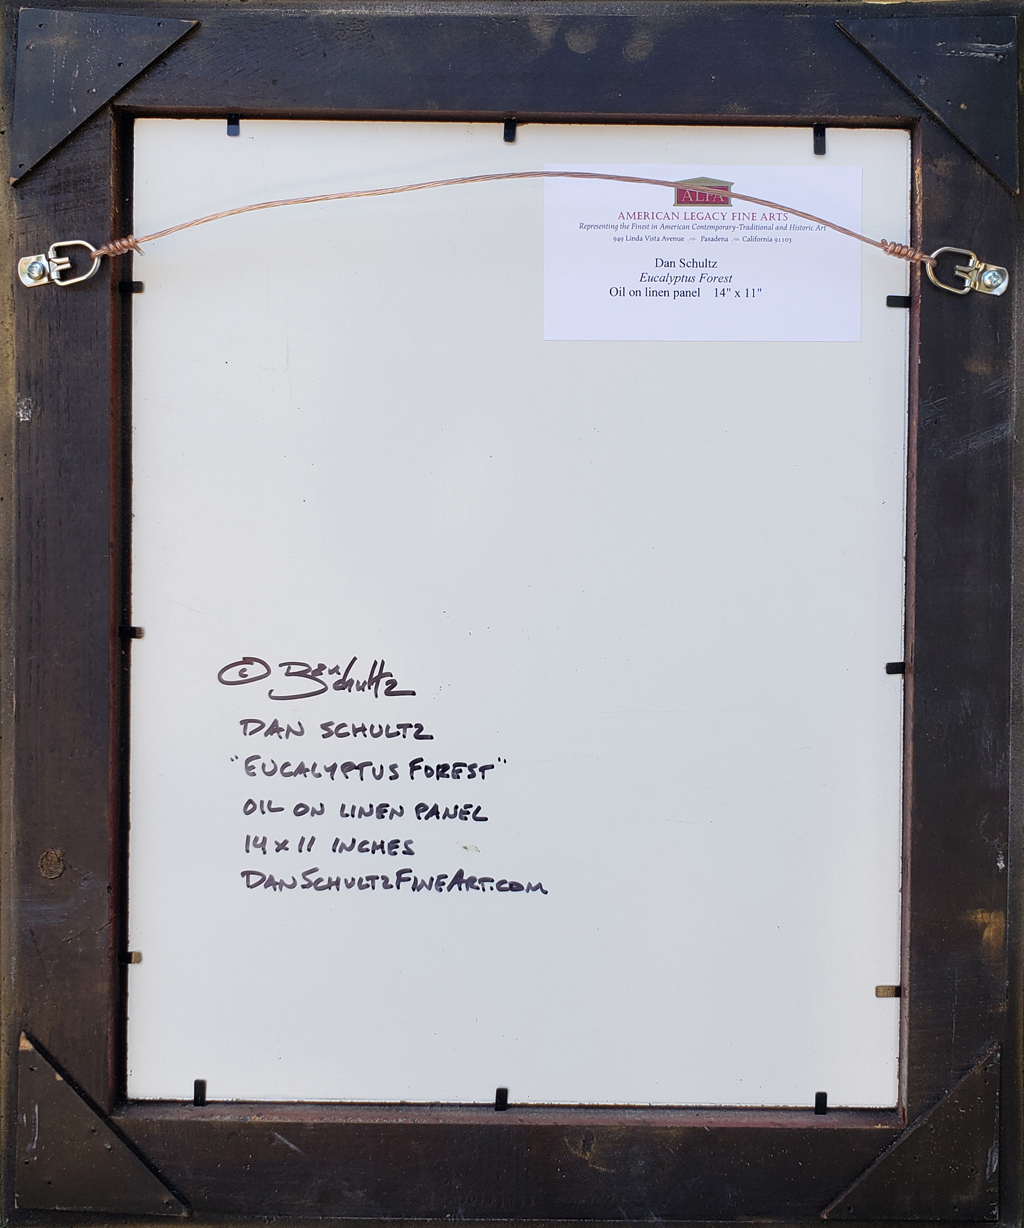 ALFA
AMERICAN LEGACY FINE ARTS
Representing the Finest in American Contemporary-Traditional and Historic Art
949 Linda Vista Avenue ~ Pasadena ~ California 91103
Dan Schultz
Eucalyptus Forest
Oil on linen panel 14" x 11"
© Dan Schultz
DAN SCHULTZ
"EUCALYPTUS FOREST"
OIL ON LINEN PANEL
14 x 11 INCHES
DANSCHULTZFINEART.COM